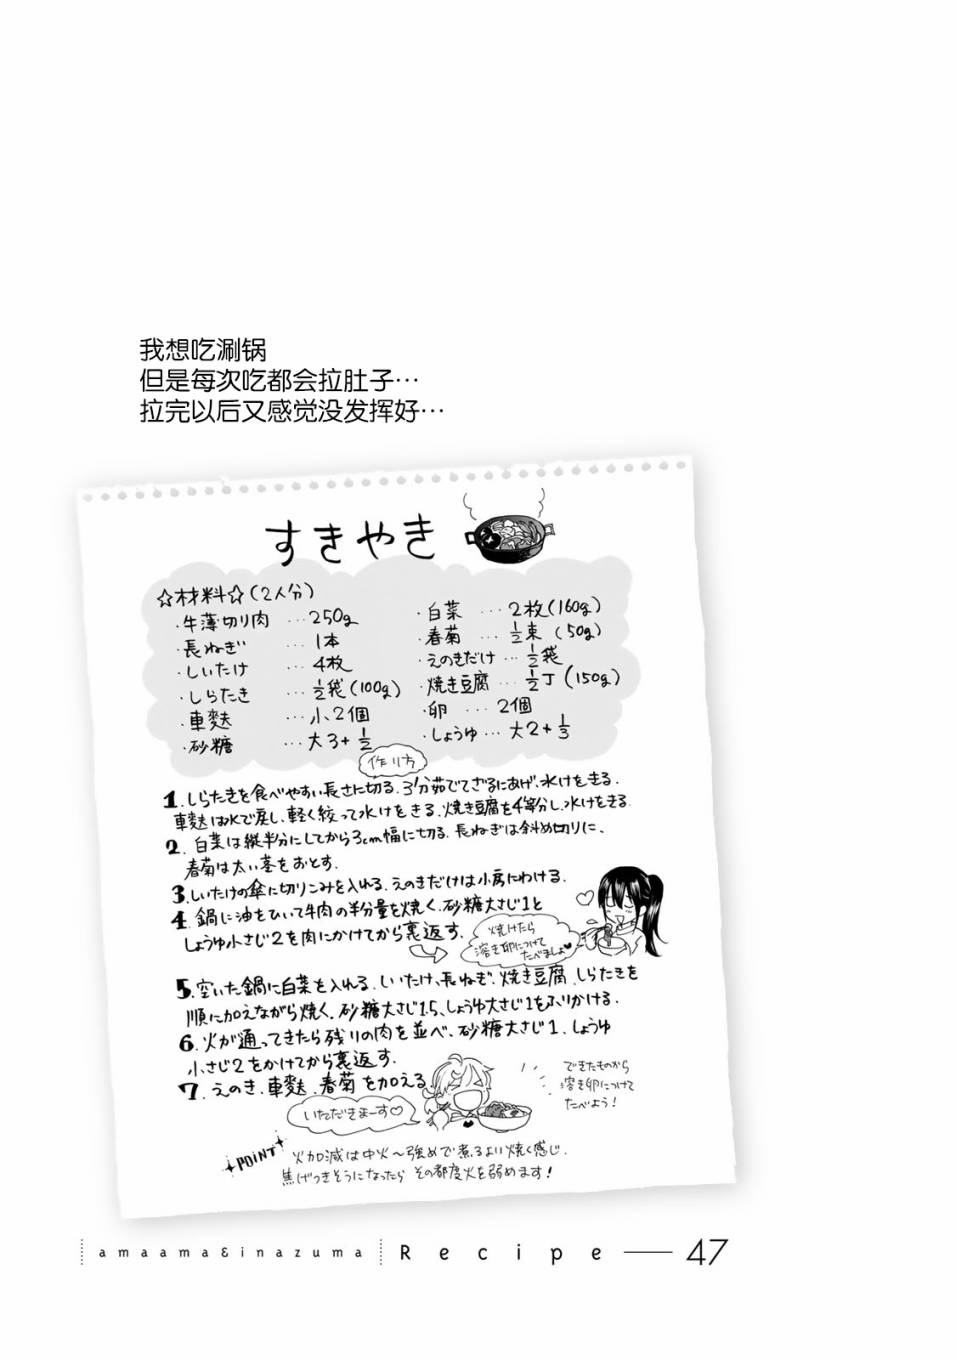 我想吃涮锅
但是每次吃都会拉肚子…
拉完以后又感觉没发挥好…
すきやき
☆材料☆(2人分)
・牛薄切り肉 …250g
・長ねぎ …1本
・しいたけ …4枚
・しらたき …½袋(100g)
・車麩 …小2個
・砂糖 …大3+½
・白菜 …2枚(160g)
・春菊 …½束(50g)
・えのきだけ …½袋
・焼き豆腐 …½丁(150g)
・卵 …2個
・しょうゆ …大2+⅓
作り方
1.しらたきを食べやすい長さに切る.3分茹でてざるにあげ、水けをきる.
車麩は水で戻し、軽く絞って水けをきる.焼き豆腐を4等分し、水けをきる.
2.白菜は縦半分にしてから3cm幅に切る.長ねぎは斜め切りに、
春菊は太い茎をおとす.
3.しいたけの傘に切りこみを入れる.えのきだけは小房にわける.
4.鍋に油をひいて牛肉の半分量を焼く.砂糖大さじ1と
しょうゆ小さじ2を肉にかけてから裏返す.
焼けたら
溶き卵につけて
たべましょ♥
5.空いた鍋に白菜を入れる.しいたけ、長ねぎ、焼き豆腐、しらたきを
順に加えながら焼く.砂糖大さじ1.5、しょうゆ大さじ1をふりかける.
6.火が通ってきたら残りの肉を並べ、砂糖大さじ1、しょうゆ
小さじ2をかけてから裏返す.
7.えのき、車麩、春菊を加える
いただきまーす♡
できたものから
溶き卵につけて
たべよう!
POINT
火加減は中火〜強めで煮るより焼く感じ.
焦げつきそうになったら その都度火を弱めます!
amaama&inazuma Recipe 47